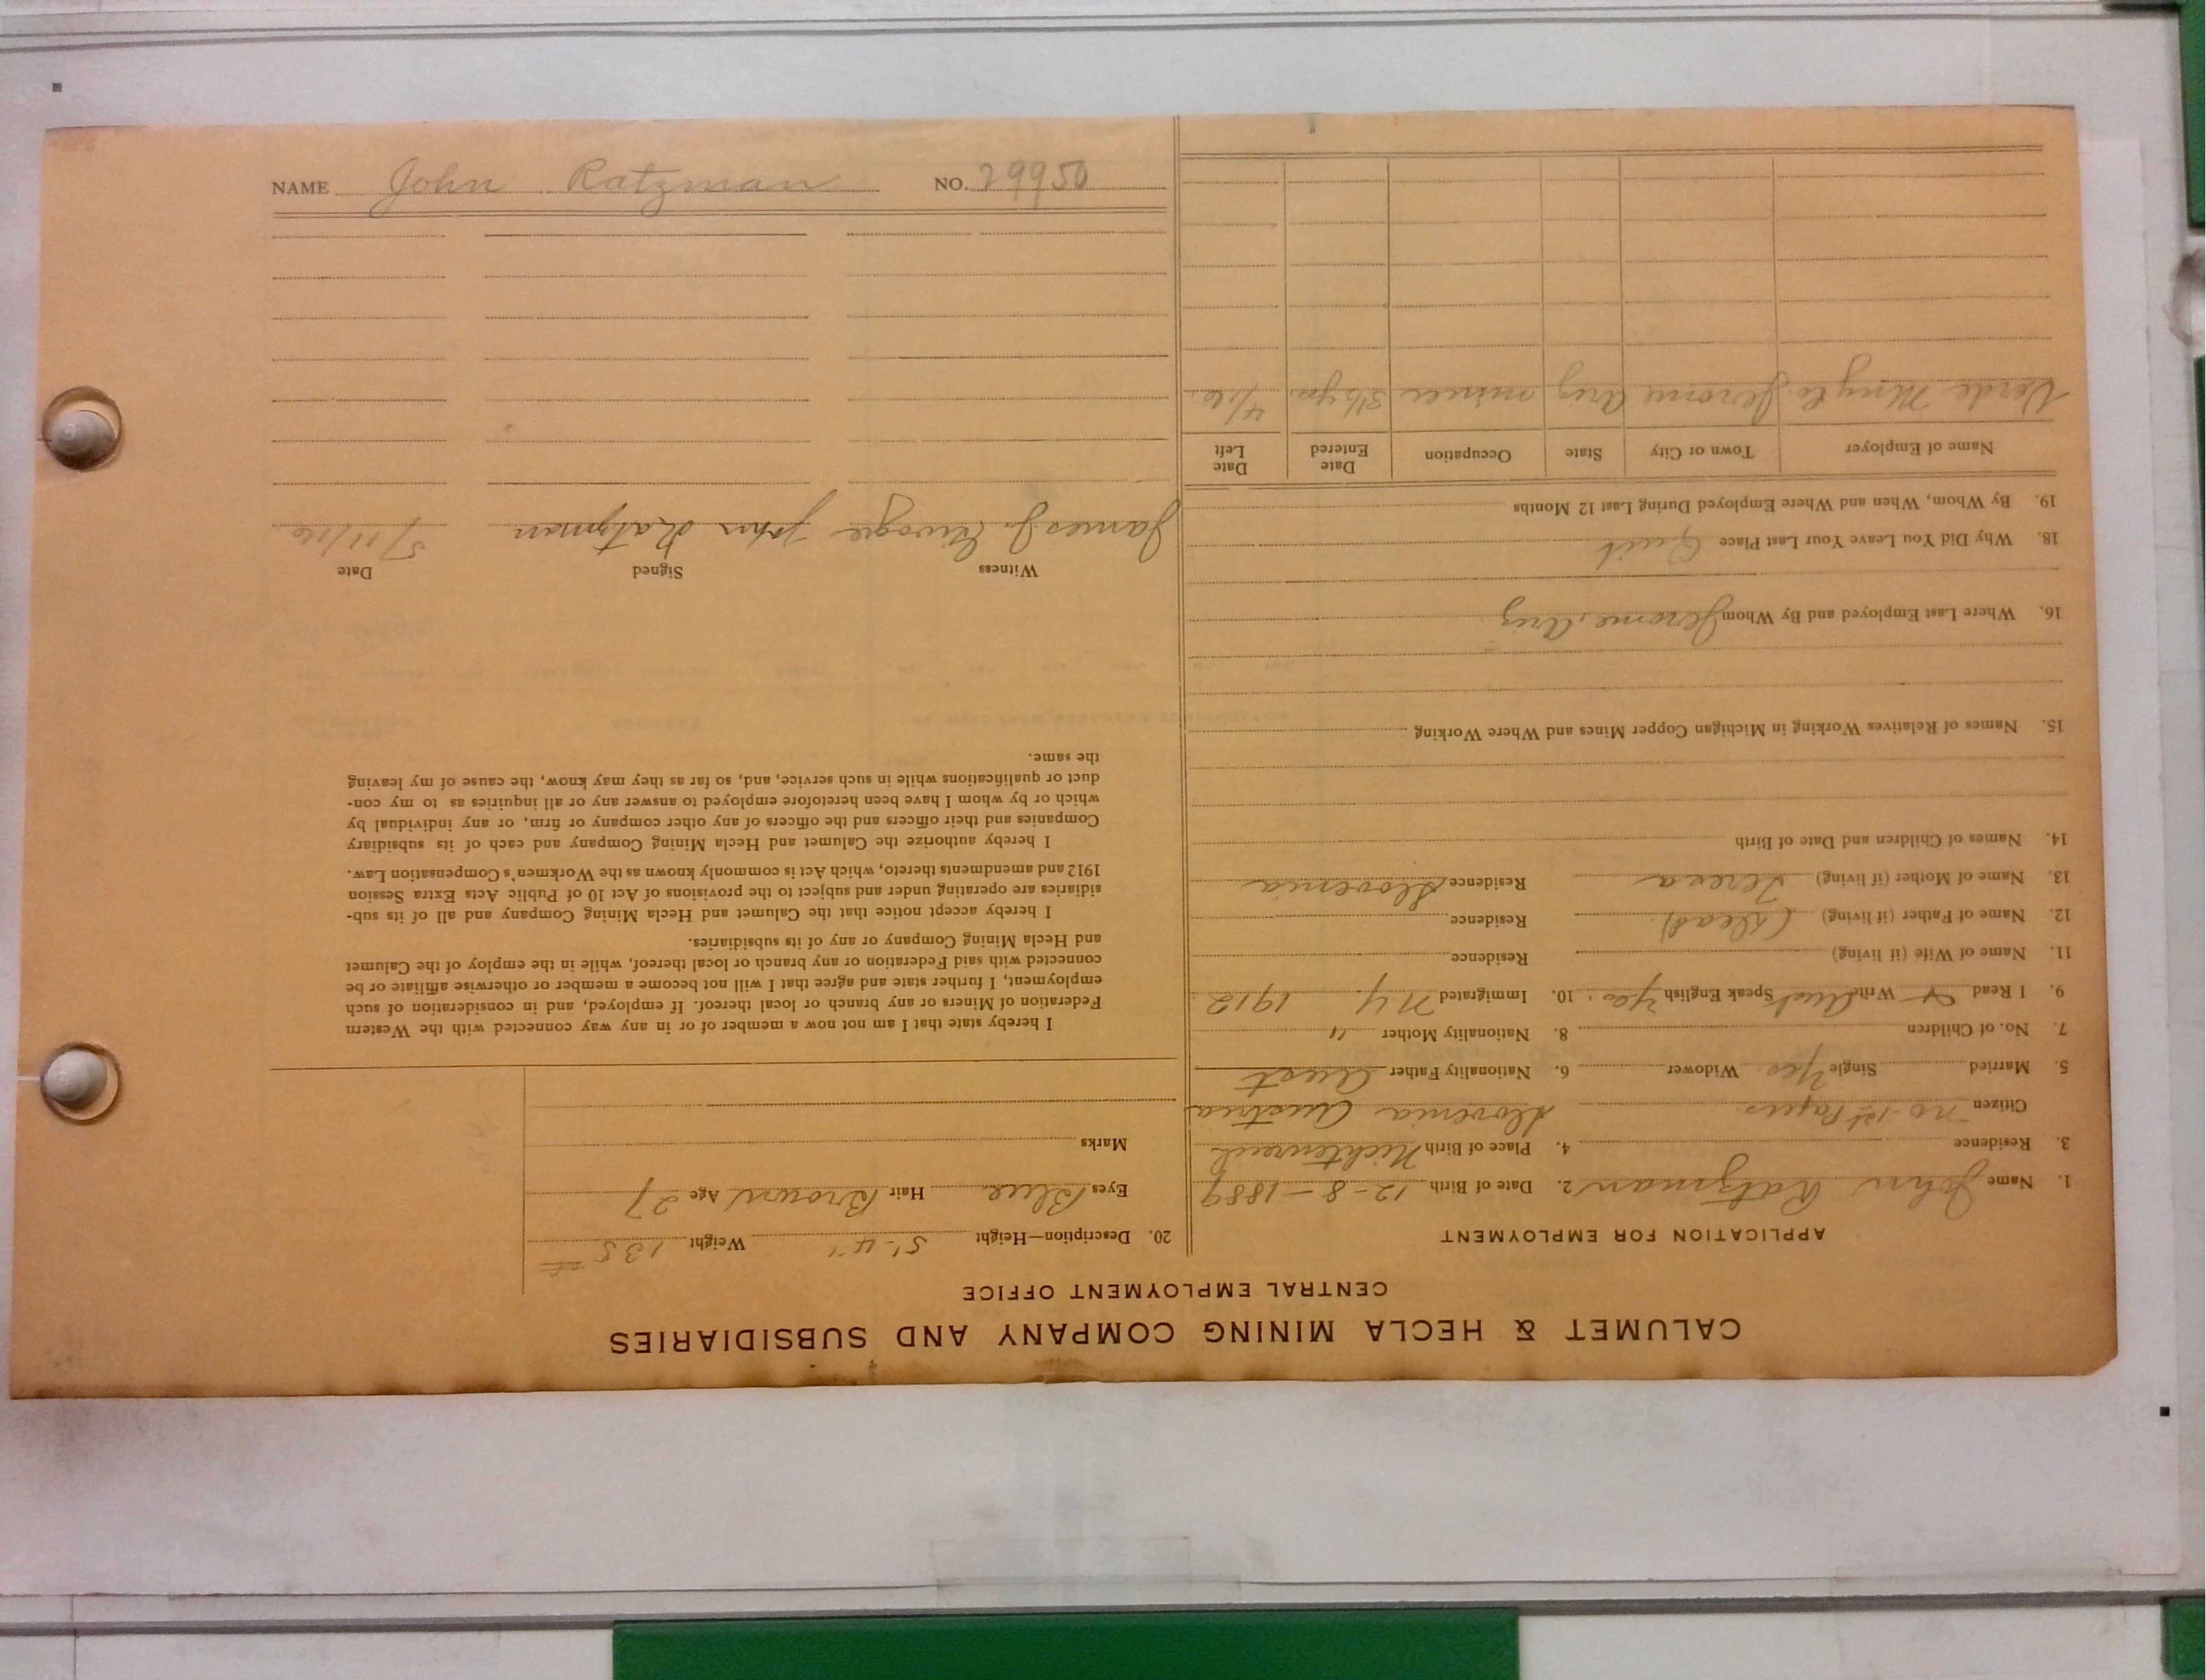 CALUMET & HECLA MINING COMPANY AND SUBSIDIARIES
CENTRAL EMPLOYMENT OFFICE
APPLICATION FOR EMPLOYMENT
1. Name John Ratzman 2. Date of Birth 12-8-1889
3. Residence 4. Place of Birth
Citizen no 1st Papers Slovenia Austria
5. Married Single Yes Widower 6. Nationality Father Aust
7. No. of Children 8. Nationality Mother "
9. I Read & Write Aust Speak English Yes. 10. Immigrated N.Y. 1912
11. Name of Wife (if living) Residence
12. Name of Father (if living) (Dead) Residence
13. Name of Mother (if living) Tereza Residence Slovenia
14. Names of Children and Date of Birth
15. Names of Relatives Working in Michigan Copper Mines and Where Working
16. Where Last Employed and By Whom Jerome, Ariz
18. Why Did You Leave Your Last Place Quit
19. By Whom, When and Where Employed During Last 12 Months
Name of Employer Town or City State Occupation Date Entered Date Left
Verde Mng Co. Jerome Ariz miner 3½ yrs. 4/16
20. Description—Height 5'-4" Weight 135 #
Eyes Blue Hair Brown Age 27
Marks
I hereby state that I am not now a member of or in any way connected with the Western
Federation of Miners or any branch or local thereof. If employed, and in consideration of such
employment, I further state and agree that I will not become a member or otherwise affiliate or be
connected with said Federation or any branch or local thereof, while in the employ of the Calumet
and Hecla Mining Company or any of its subsidiaries.
I hereby accept notice that the Calumet and Hecla Mining Company and all of its sub-
sidiaries are operating under and subject to the provisions of Act 10 of Public Acts Extra Session
1912 and amendments thereto, which Act is commonly known as the Workmen's Compensation Law.
I hereby authorize the Calumet and Hecla Mining Company and each of its subsidiary
Companies and their officers and the officers of any other company or firm, or any individual by
which or by whom I have been heretofore employed to answer any or all inquiries as to my con-
duct or qualifications while in such service, and, so far as they may know, the cause of my leaving
the same.
Witness Signed Date
James J. John Ratzman 5/11/16
NAME John Ratzman NO. 29950